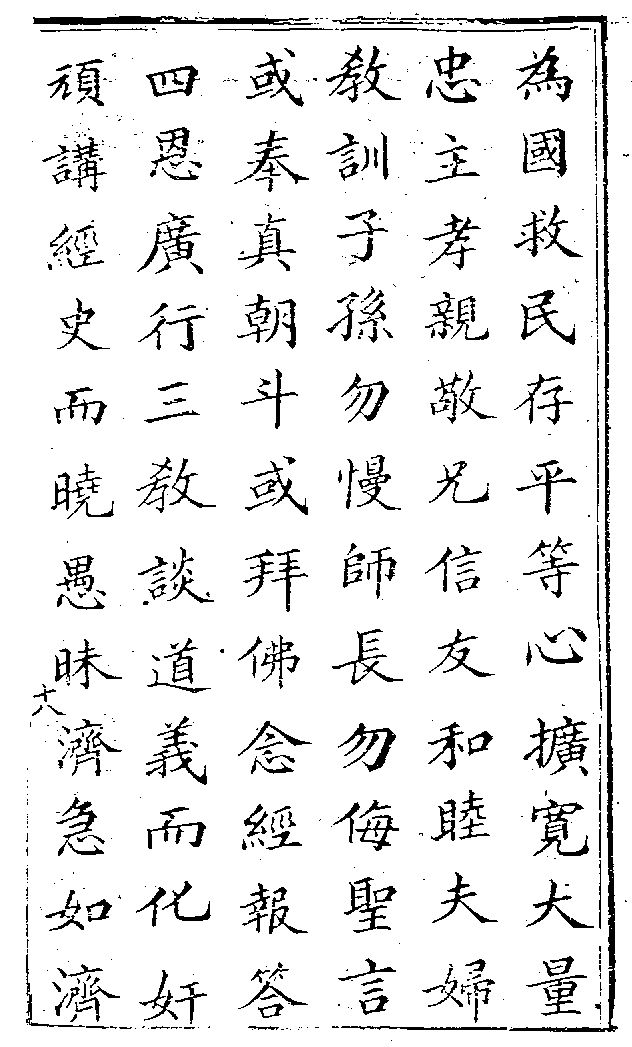 為國救民存平等心擴寬大量
忠主孝親敬兄信友和睦夫婦
教訓子孫勿慢師長勿侮聖言
或奉真朝斗或拜佛念經報答
四恩廣行三教談道義而化奸
頑講經史而曉愚昧濟急如濟
十八